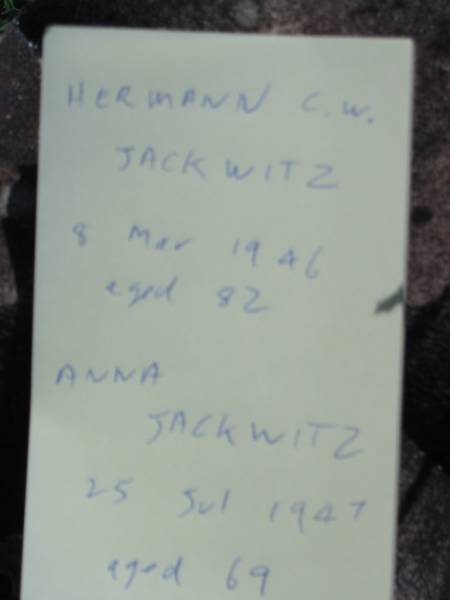 HERMANN C.W.
JACKWITZ
8 Mar 1946
aged 82
ANNA
JACKWITZ
25 Jul 1947
aged 69